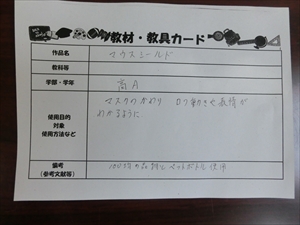 教材・教具カード
作品名 マウスシールド
教科等
学部・学年 高A
使用目的 マスクのかわり 口の動きや表情が
対象 わかるように
使用方法など
備考 100均の
(参考文献等)